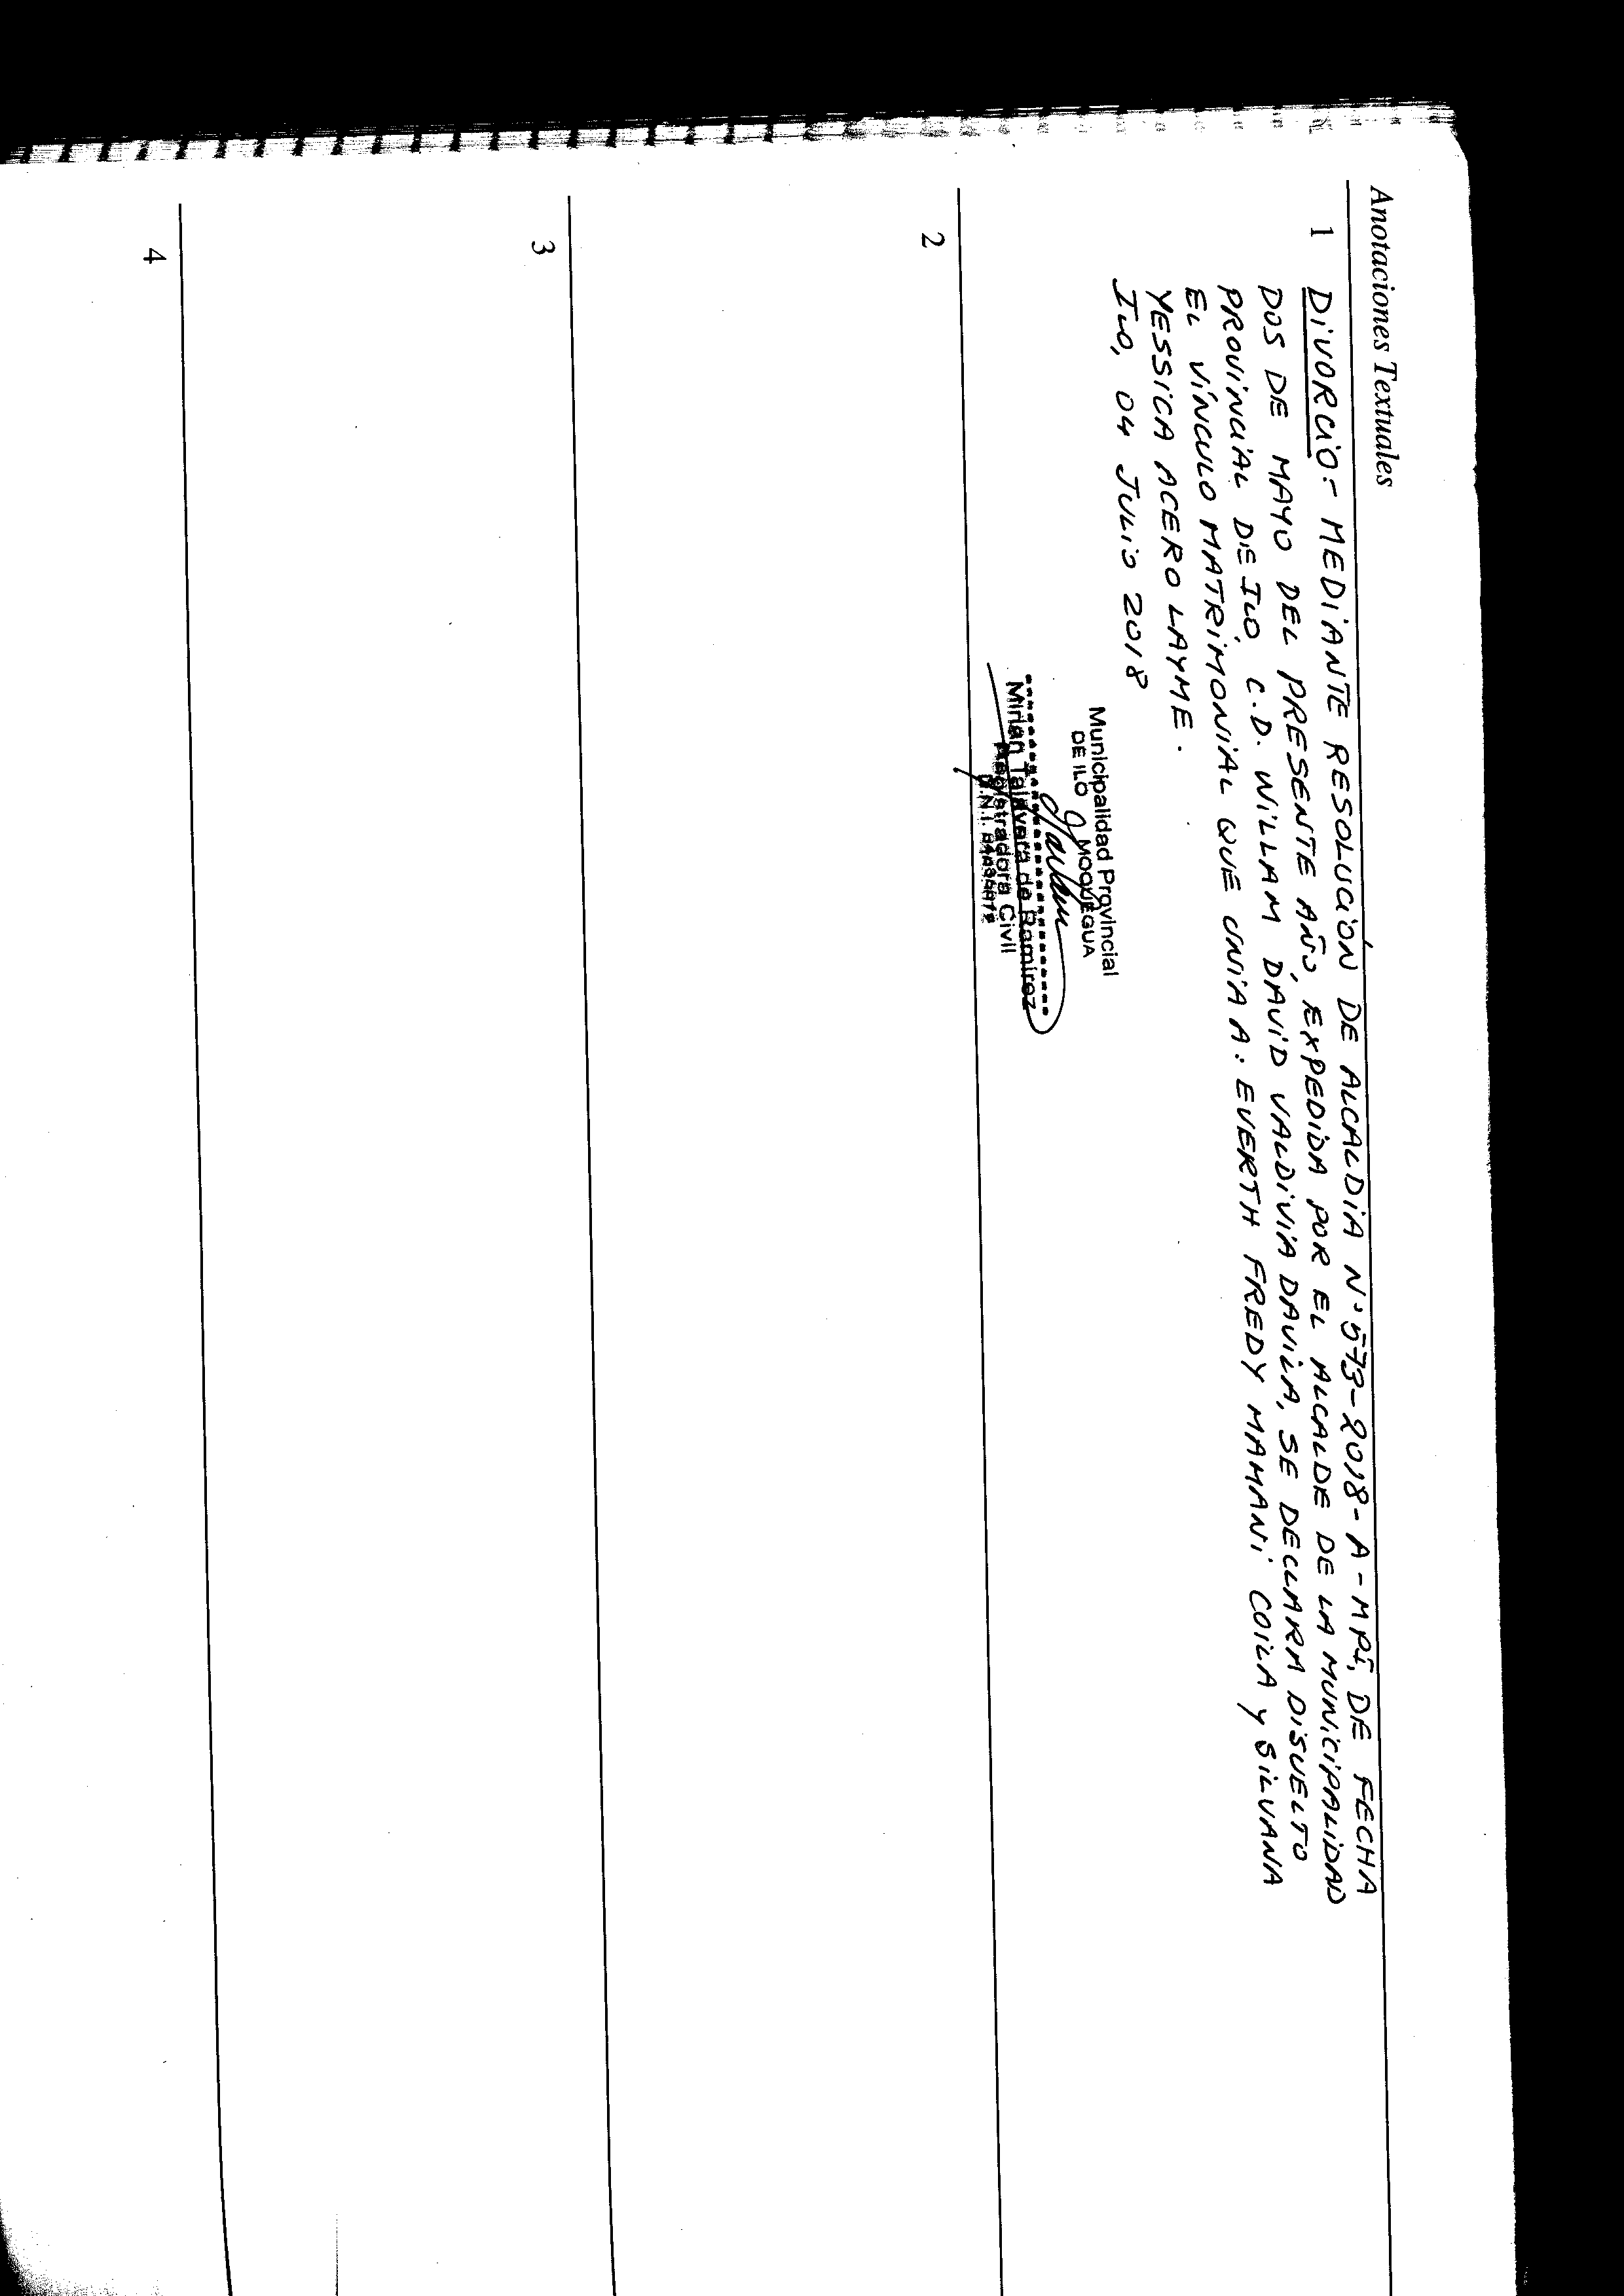 Anotaciones Textuales
1 DIVORCIO:- MEDIANTE RESOLUCIÓN DE ALCALDIA N.º 573-2018-A-MPI, DE FECHA
DOS DE MAYO DEL PRESENTE AÑO, EXPEDIDA POR EL ALCALDE DE LA MUNICIPALIDAD
PROVINCIAL DE ILO, C.D. WILLAM DAVID VALDIVIA DAVILA, SE DECLARA DISUELTO
EL VÍNCULO MATRIMONIAL QUE UNIA A: EVERTH FREDY MAMANI COILA Y SILVANA
YESSICA ACERO LAYME.
ILO, 04 JULIO 2018
Municipalidad Provincial
DE ILO MOQUEGUA
Mirian Talavera de Ramirez
Registradora Civil
D.N.I.
2
3
4